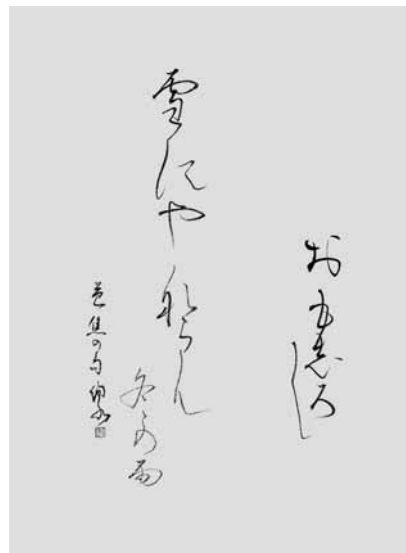 おもしろし
雪にやならん
冬の雨
芭蕉の句